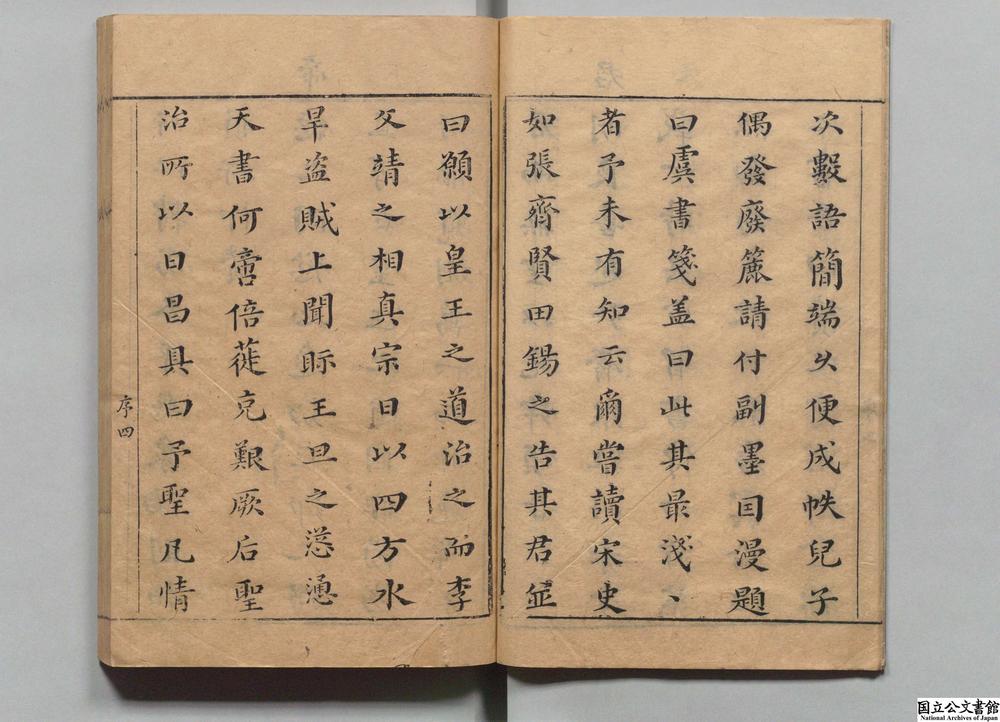 次數語簡端久便成帙兒子
偶發廢簏請付副墨因漫題
曰虞書箋盖曰此其最淺丶
者予未有知云爾嘗讀宋史
如張齊賢田錫之告其君並
曰願以皇王之道治之而李
文靖之相真宗日以四方水
旱盗賊上聞眎王旦之慫慂
天書何啻倍蓰克艱厥后聖
治所以日昌具曰予聖凡情
序四
国立公文書館
National Archives of Japan